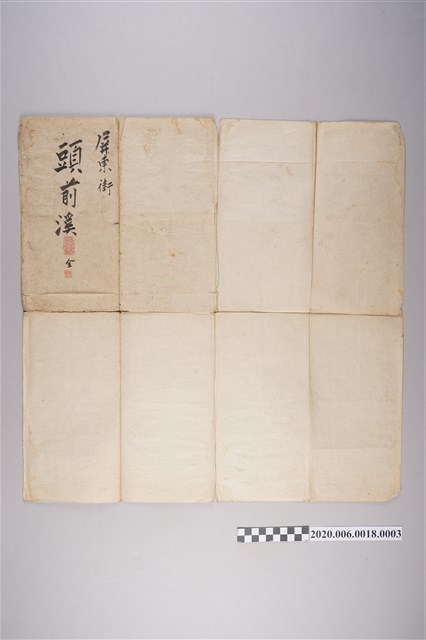 屏東街
頭前溪
全
2020.006.0018.0003